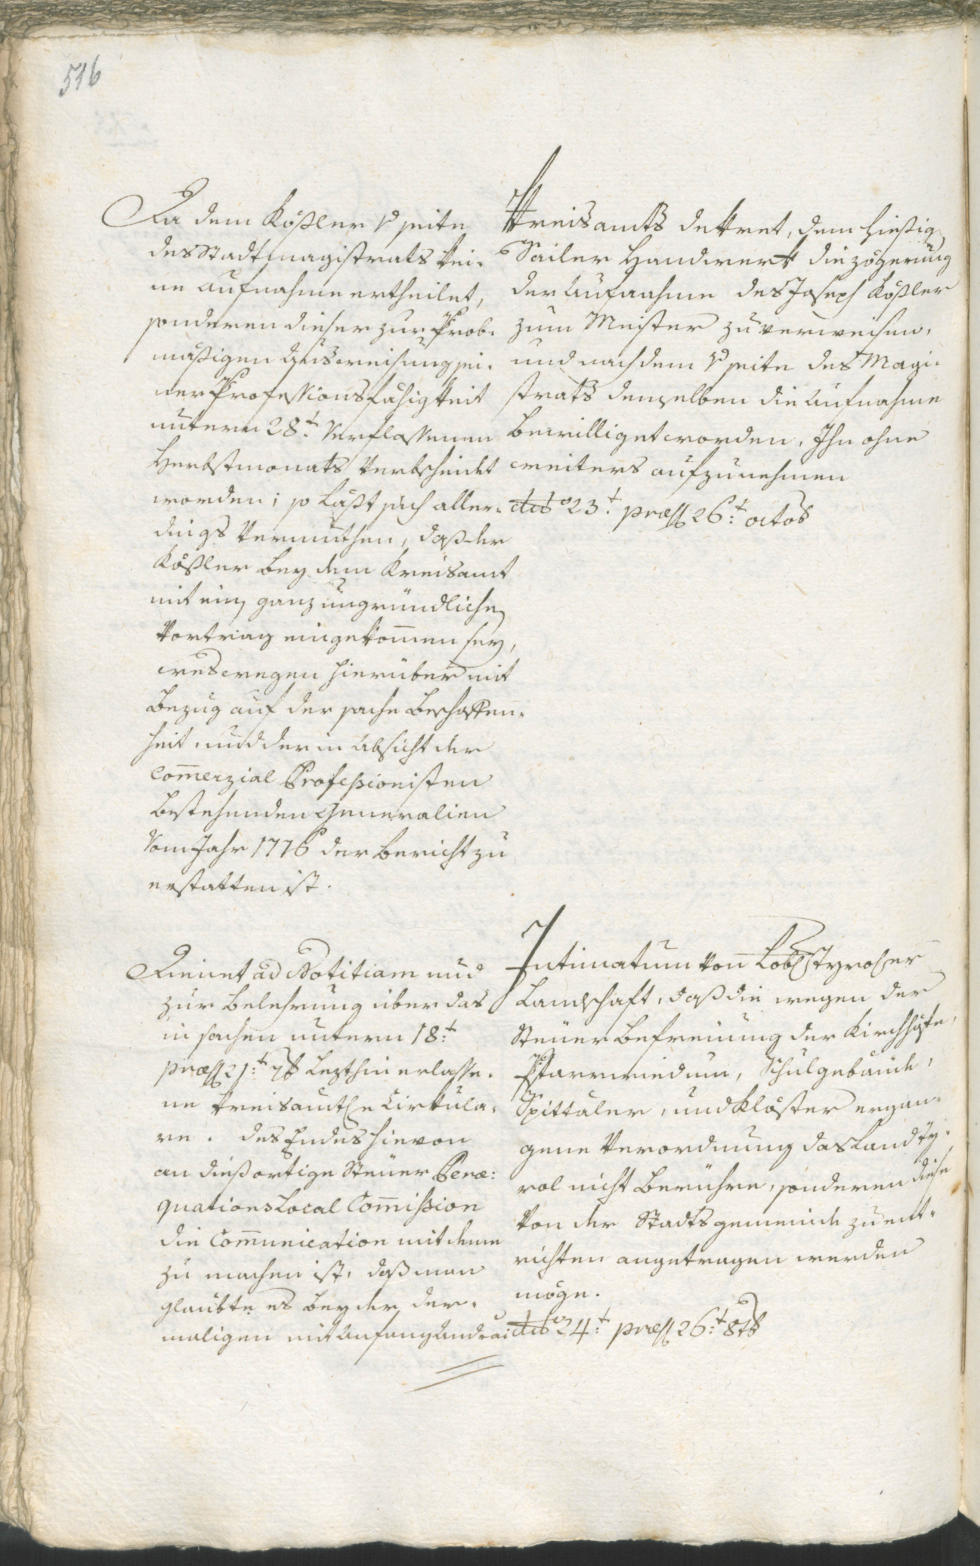 516
Da dem Kößler v seite
des Stadtmagistrats kei-
ne Aufnahme ertheilet,
sonderen dieser zur Prob-
mäßigen Ausweisung sei-
ner Professionsfähigkeit
unterm 28t. verflossenen
Herbstmonats verbscheidet
worden; so laßt sich aller-
dings vermuthen, daß der
Kößler bey dem Kreisamt
mit eine ganz ungründliche
Vortrag eingekom̄en sey,
weswegen hierüber mit
Bezug auf der sache Beschaffen-
heit, und der in Absicht der
Com̄erzial Profeßionisten
bestehenden Generalien
vom Jahr 1776 der Bericht zu
erstatten ist.
Kreisamts dekret, dem hießig
Sailer Handwerk die zögerung
der Aufnahme des Joseph Kößler
zum Meister zu verweisen,
und nachdem v seite des Magi-
strats demselben die Aufnahme
bewilliget worden, Ihn ohne
weiters aufzunehmen
dto 23t. præs 26t. octob
Dienet ad Notitiam und
zur Belehrung über das
in sachen unterm 18t.
præs 21t. 7b lezthin erlasse-
ne kreisamtle Cirkula-
re. des Endes hievon
an dießortige Steuer Peræ-
quations Local Com̄ißion
die Com̄unication mit deme
zu machen ist, daß man
glaubte es bey der der-
maligen mit Anfang Andrai
Intimatum von Löbl Tyroler
Landschaft, daß die wegen der
Steuer befreiung der Kirchhöfe,
Pfarrwiedum, Schulgebäude,
Spittäler, und Klöster ergan-
gene Verordnung das Land Ty-
rol nicht berühre, sonderen diese
von der Stadtsgemeinde zu ent-
richten angetragen werden
möge.
dto 24t. præs 26t. 8b